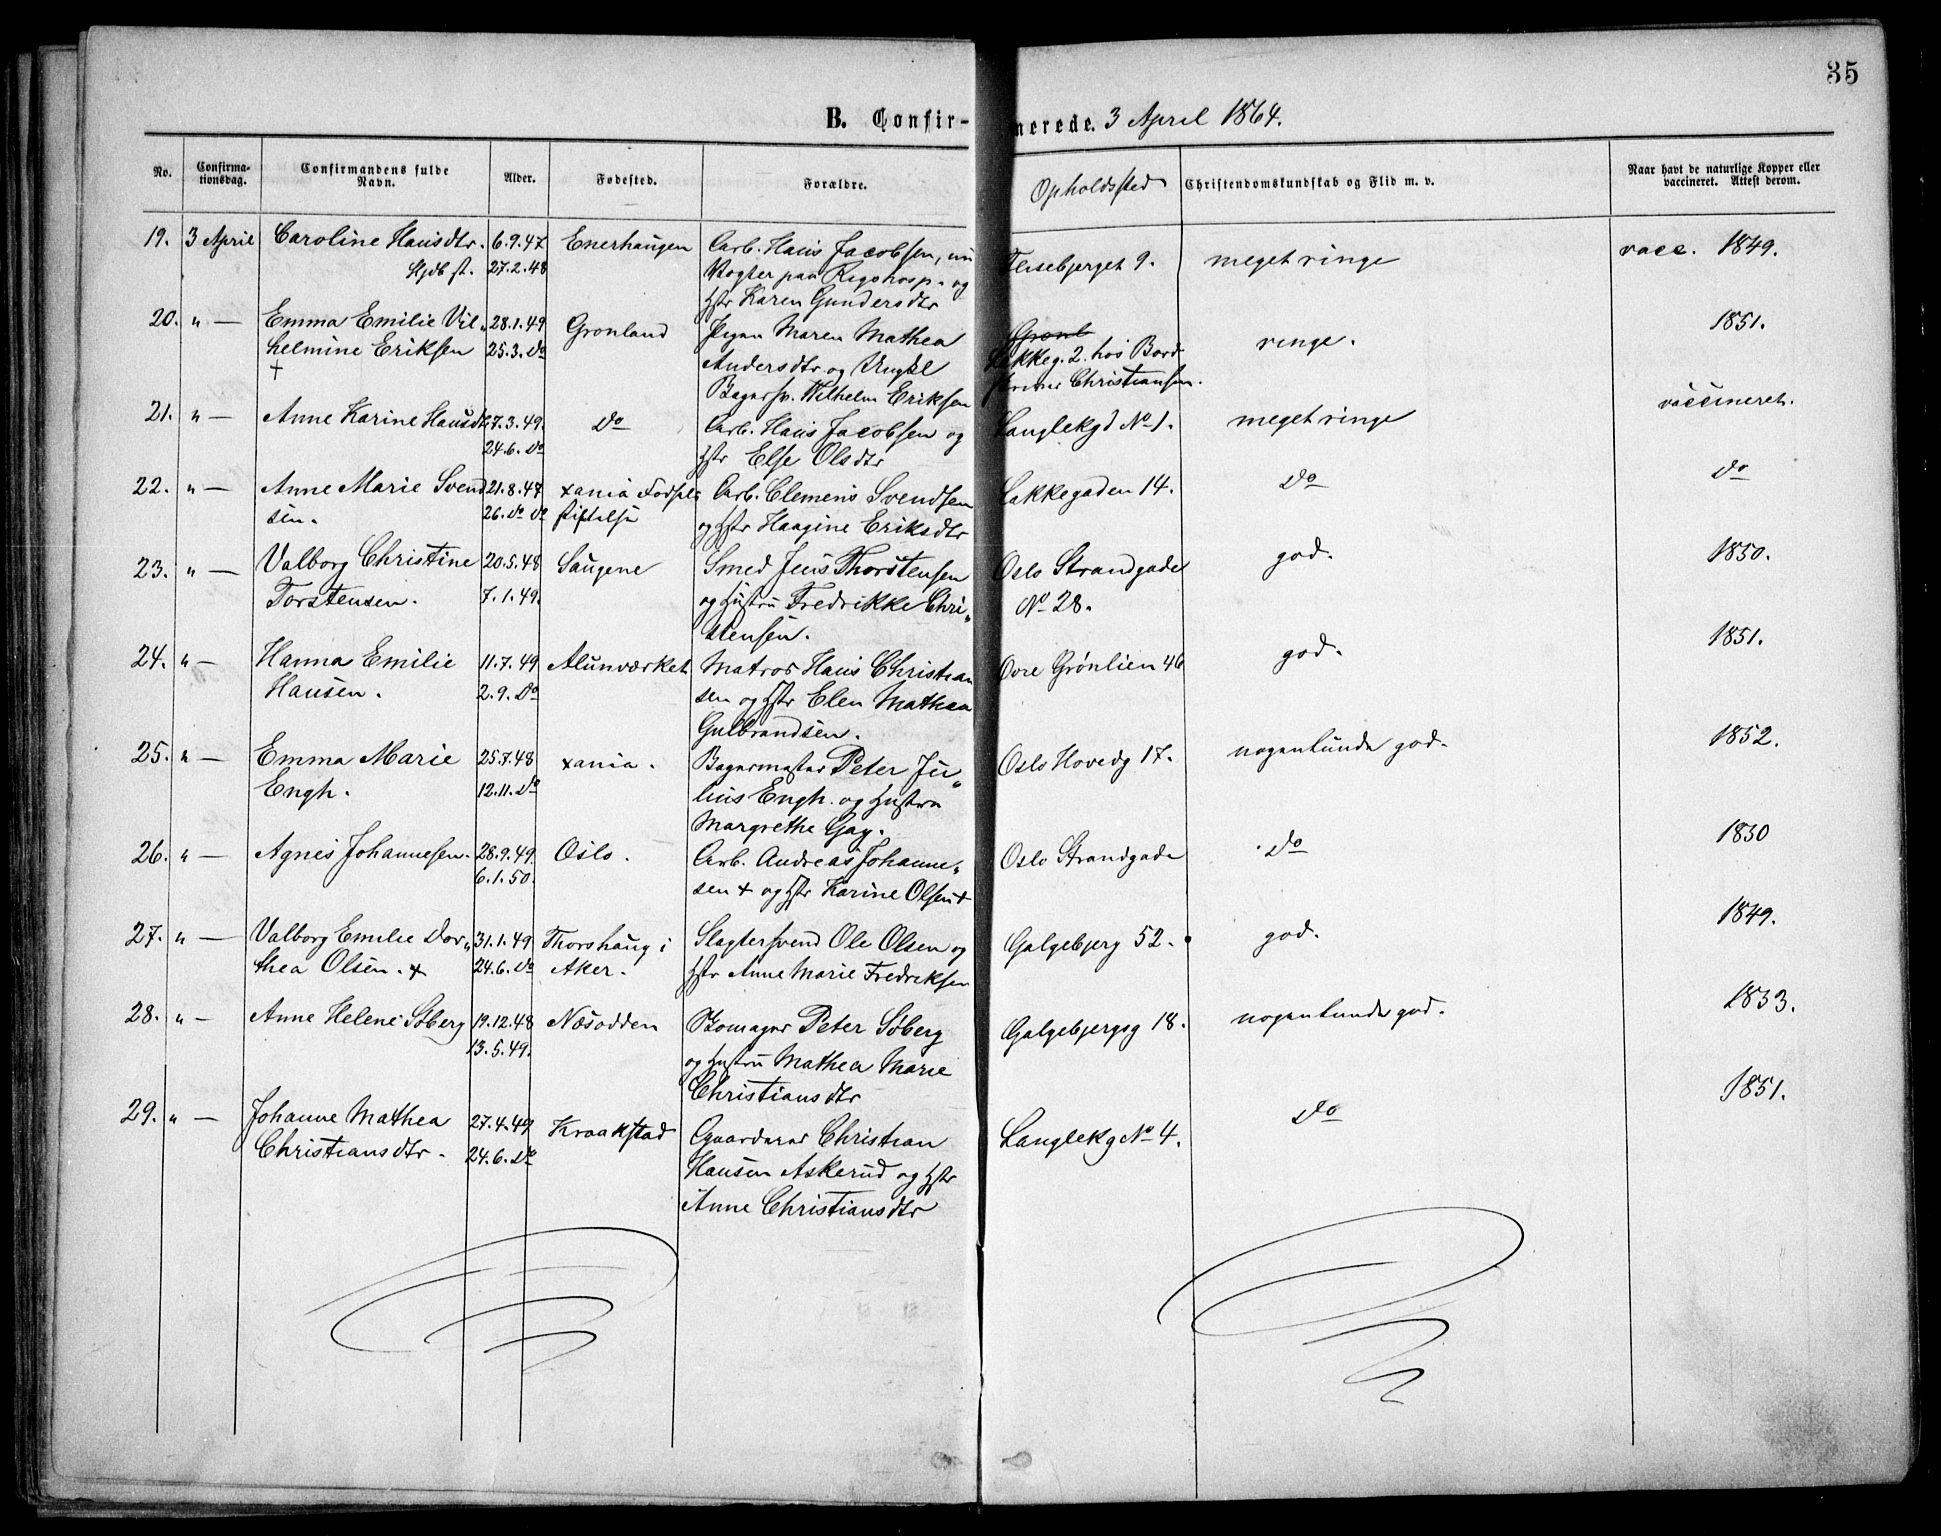 35
B. Confirmerede. 3 April 1864.
No. Confirmationsdag. Confirmandens fulde Navn. Alder. Fødested. Forældre. Opholdssted Christendomskundskab og Flid m. v. Naar havt de naturlige Kopper eller vaccineret. Attest derom.
19. 3 April Caroline Hansdtr. 6.9.47 Enerhaugen Arb. Hans Jacobsen, nu Flisebjerget 9. meget ringe vacc. 1849.
Hjdb st. 27.2.48 Vogter paa Rigshosp. og
Hstr Karen Gundersdtr
20. " — Emma Emilie Vil„ 28.1.49 Grønland Pigen Maren Mathea Grønl ringe. 1851.
helmine Eriksen 25.3. do Andersdtr og Ungkl Lakkeg. 2. hos Bord
+ Bagersv. Wilhelm Eriksen Christiansen.
21. " — Anne Karine Hansdtr 27.3.49. do Arb. Hans Jacobsen og Langlekgd No 1. meget ringe vaccineret.
24.6. do Hstr Else Olsdtr
22. " — Anne Marie Svend 21.8.47 xania Fødsels Arb. Clemens Svendsen Lakkegaden 14. do do
sen. 26. do do stiftelse og Hstr Haagine Eriksdtr
23. " — Valborg Christine 20.5.48 Saugene Smed Jens Thorstensen Oslo Strandgade god. 1850.
Torstensen. 7.1.49. og Hustru Fredrikke Chri„ No 28.
stensen.
24. " — Hanna Emilie 11.7.49 Alunværket Matros Hans Christian Øvre Grønlien 46 god. 1851.
Hansen. 2.9. do sen og Hstr Elen Mathea
Gulbrandsen.
25. " — Emma Marie 25.7.48 xania. Bagermester Peter Ju„ Oslo Hovedg 17. nogenlunde god. 1852.
Engh. 12.11. do lius Engh. og Hustru
Margrethe Gay.
26. " — Agnes Johannesen. 28.9.49. Oslo. Arb. Andreas Johanne„ Oslo Strandgade do 1850
6.1.50. sen + og Hstr Karine Olsen +
27. " — Valborg Emilie Dor„ 31.1.49 Thorshaug i Slagtersvend Ole Olsen og Galgebjerg 52. god. 1849.
thea Olsen. + 24.6. do Aker. Hstr Anne Marie Fredriksen
28. " — Anne Helene Søberg 19.12.48 Næsodden Skomager Peter Søberg Galgebjergsg 18. nogenlunde god. 1853.
13.5.49. og Hustru Mathea Marie
Christiansdtr
29. " — Johanne Mathea 27.4.49 Kraakstad Gaardeier Christian Langlekg No 4. do 1851.
Christiansdtr. 24.6. do Hansen Askerud og Hstr
Anne Christiansdtr